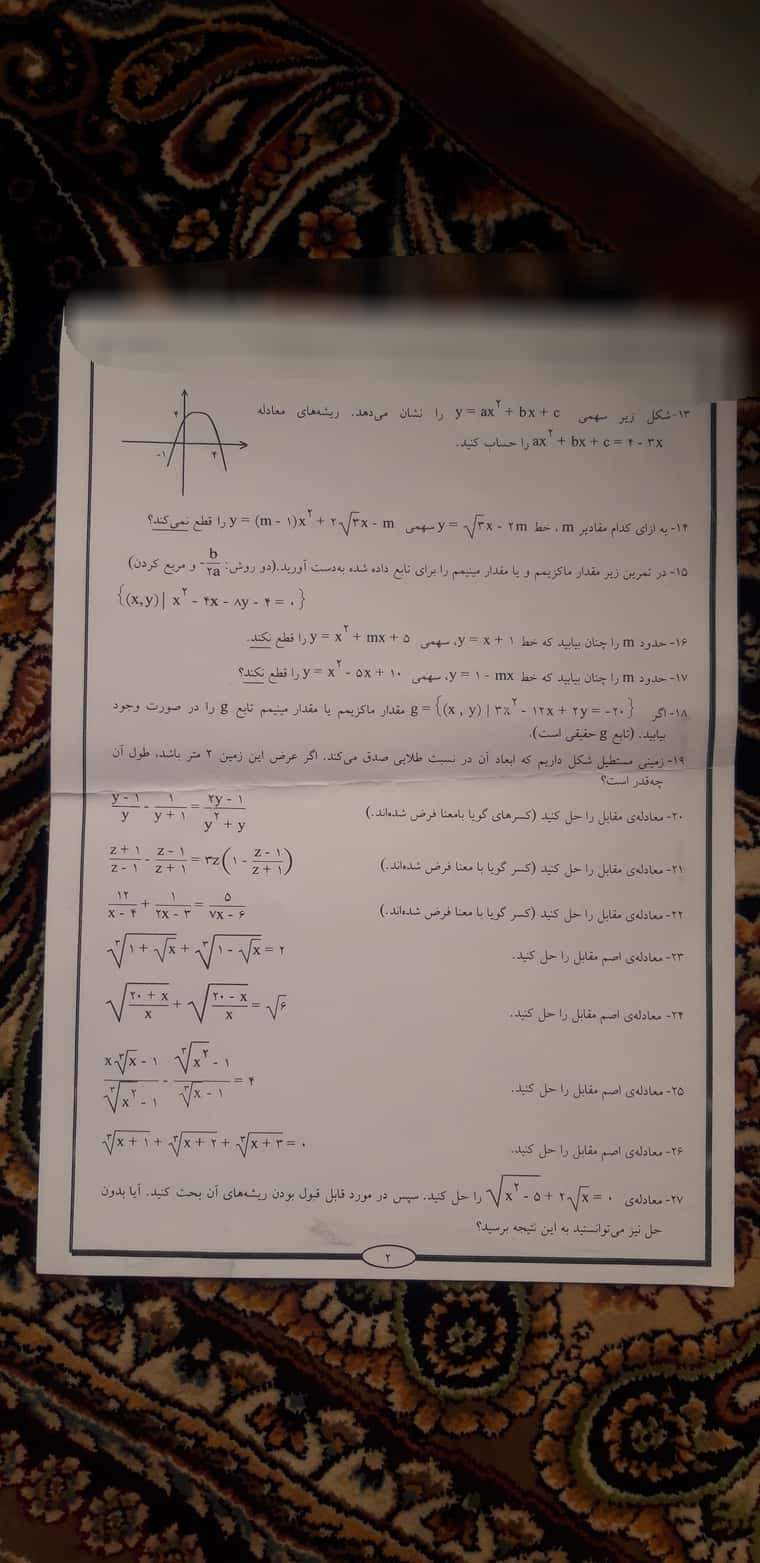 ۱۳-شکل زیر سهمی y = ax² + bx + c را نشان می‌دهد. ریشه‌های معادله
ax² + bx + c = ۴ - ۳x را حساب کنید.
۴
-۱
۴
۱۴- به ازای کدام مقادیر m ، خط y = √۳x - ۲m سهمی y = (m - ۱)x² + ۲√۳x - m را قطع نمی‌کند؟
۱۵- در تمرین زیر مقدار ماکزیمم و یا مقدار مینیمم را برای تابع داده شده به‌دست آورید.(دو روش: -b/۲a و مربع کردن)
{(x,y)| x² - ۴x - ۸y - ۴ = ۰}
۱۶- حدود m را چنان بیابید که خط y = x + ۱، سهمی y = x² + mx + ۵ را قطع نکند.
۱۷- حدود m را چنان بیابید که خط y = ۱ - mx، سهمی y = x² - ۵x + ۱۰ را قطع نکند؟
۱۸- اگر g = {(x , y) | ۳x² - ۱۲x + ۲y = -۲۰} مقدار ماکزیمم یا مقدار مینیمم تابع g را در صورت وجود
بیابید. (تابع g حقیقی است).
۱۹- زمینی مستطیل شکل داریم که ابعاد آن در نسبت طلایی صدق می‌کند. اگر عرض این زمین ۲ متر باشد، طول آن
چه‌قدر است؟
۲۰- معادله‌ی مقابل را حل کنید (کسرهای گویا بامعنا فرض شده‌اند.) (y - ۱)/y - ۱/(y + ۱) = (۲y - ۱)/(y² + y)
۲۱- معادله‌ی مقابل را حل کنید (کسر گویا با معنا فرض شده‌اند.) (z + ۱)/(z - ۱) - (z - ۱)/(z + ۱) = ۳z(۱ - (z - ۱)/(z + ۱))
۲۲- معادله‌ی مقابل را حل کنید (کسر گویا با معنا فرض شده‌اند.) ۱۲/(x - ۴) + ۱/(۲x - ۳) = ۵/(۷x - ۶)
۲۳- معادله‌ی اصم مقابل را حل کنید. ∛(۱ + √x) + ∛(۱ - √x) = ۲
۲۴- معادله‌ی اصم مقابل را حل کنید. √((۲۰ + x)/x) + √((۲۰ - x)/x) = √۶
۲۵- معادله‌ی اصم مقابل را حل کنید. (x∛x - ۱)/(∛x² - ۱) - (∛x² - ۱)/(∛x - ۱) = ۴
۲۶- معادله‌ی اصم مقابل را حل کنید. ∛(x + ۱) + ∛(x + ۲) + ∛(x + ۳) = ۰
۲۷- معادله‌ی √(x² - ۵) + ۲√x = ۰ را حل کنید. سپس در مورد قابل قبول بودن ریشه‌های آن بحث کنید. آیا بدون
حل نیز می‌توانستید به این نتیجه برسید؟
۲